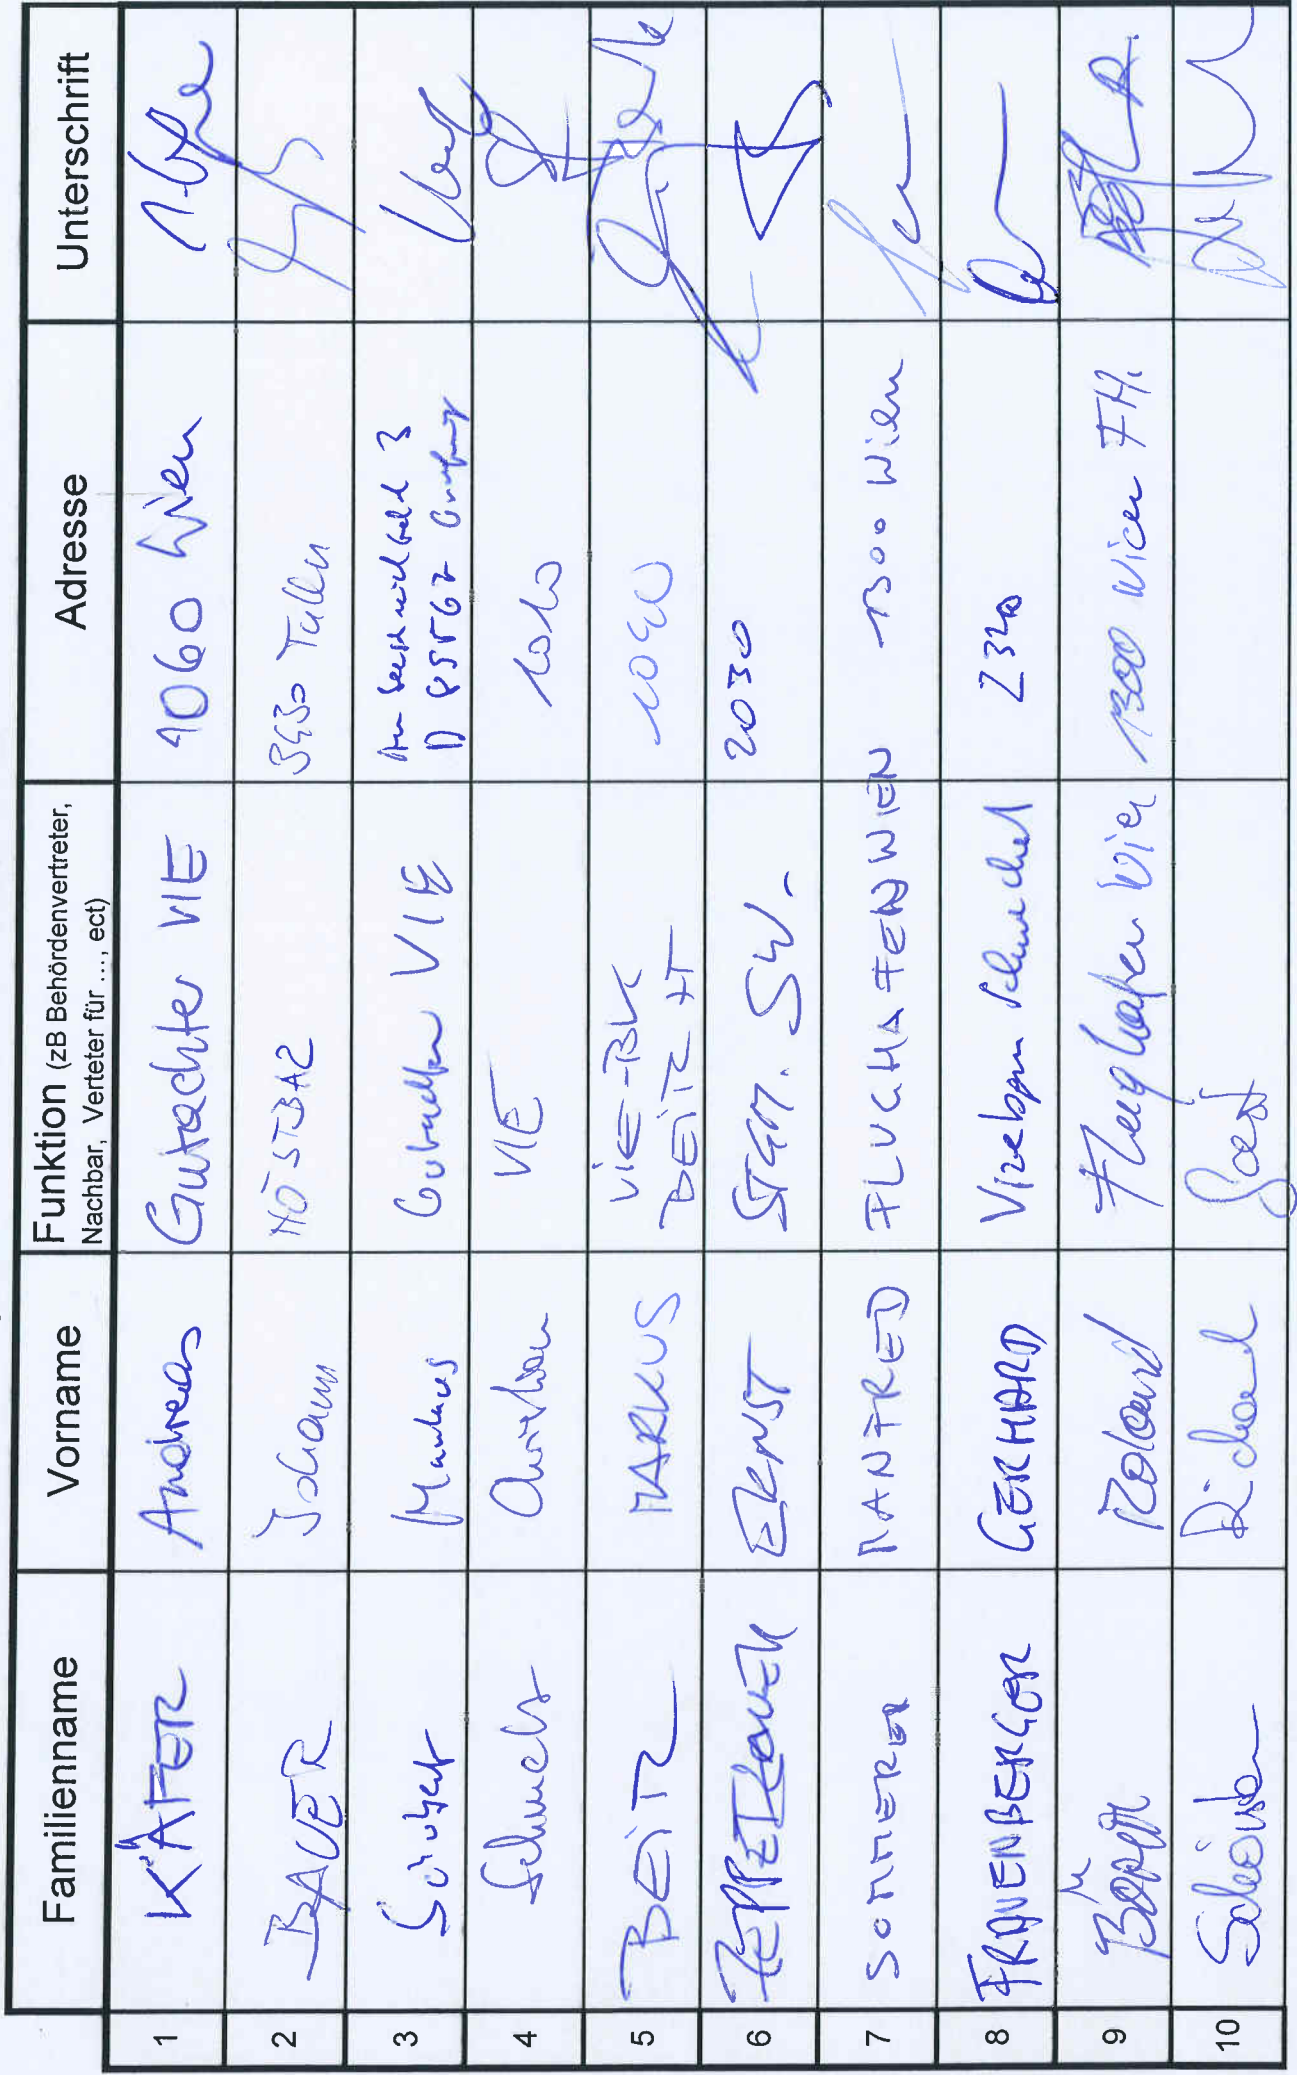 Familienname Vorname Funktion (zB Behördenvertreter, Nachbar, Verteter für ..., ect) Adresse Unterschrift
1 KÄFER Andreas Gutachter VIE 1060 Wien
2 BAUER Johann NÖ STBA2 3430 Tulln
3 Markus VIE 3 D 85567
4 Schmelz Christian VIE 1010
5 BEITL MARKUS VIE-BVK BEITL H 1030
6 ERNST STGT. SW. 2030
7 SOMMERER MANFRED FLUGHAFEN WIEN 1300 Wien
8 FRAUENBERGER GERHARD Vizebgm Schwechat 2320
9 Roland Flughafen Wien 1300 Wien FH.
10 Richard Gast